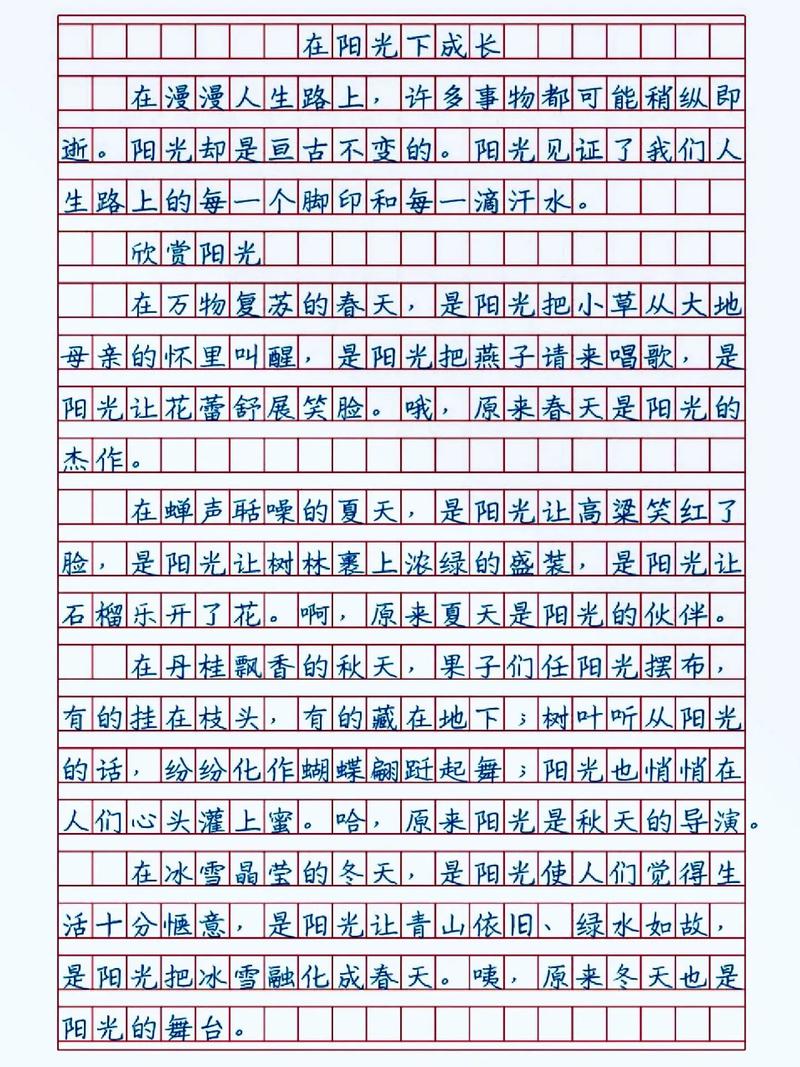 在阳光下成长
在漫漫人生路上，许多事物都可能稍纵即
逝。阳光却是亘古不变的。阳光见证了我们人
生路上的每一个脚印和每一滴汗水。
欣赏阳光
在万物复苏的春天，是阳光把小草从大地
母亲的怀里叫醒，是阳光把燕子请来唱歌，是
阳光让花蕾舒展笑脸。哦，原来春天是阳光的
杰作。
在蝉声聒噪的夏天，是阳光让高粱笑红了
脸，是阳光让树林裹上浓绿的盛装，是阳光让
石榴乐开了花。啊，原来夏天是阳光的伙伴。
在丹桂飘香的秋天，果子们任阳光摆布，
有的挂在枝头，有的藏在地下；树叶听从阳光
的话，纷纷化作蝴蝶翩跹起舞；阳光也悄悄在
人们心头灌上蜜。哈，原来阳光是秋天的导演。
在冰雪晶莹的冬天，是阳光使人们觉得生
活十分惬意，是阳光让青山依旧、绿水如故，
是阳光把冰雪融化成春天。咦，原来冬天也是
阳光的舞台。